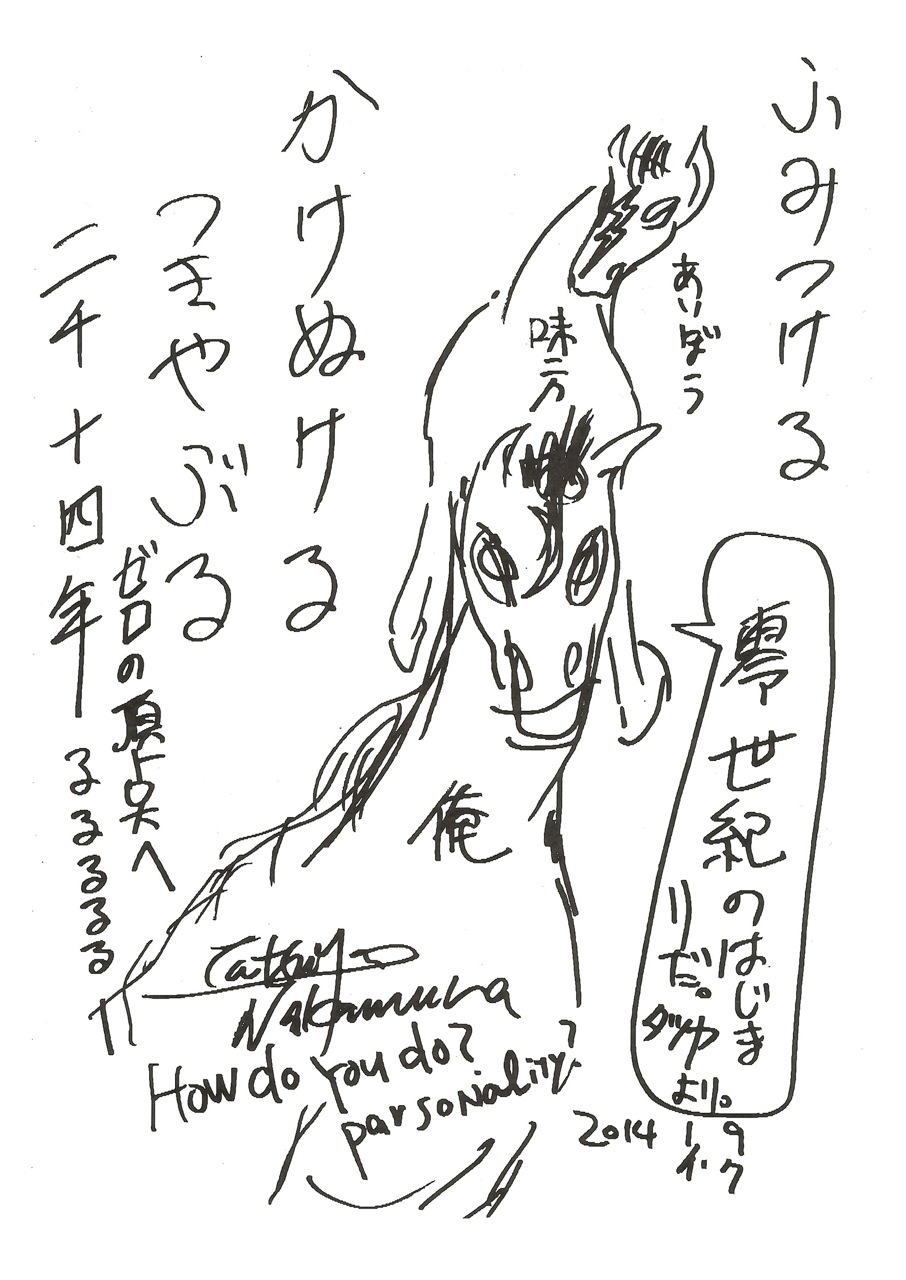 ふみつける
あいぼう
かけぬける
つきやぶる
ゼロの頂点へ
二千十四年
るるるるる
味方
俺
零世紀のはじま
りだ。
タツヤ
より。
Tatsuya
Nakamura
How do you do?
parsonality?
2014 1 9
イ・ク